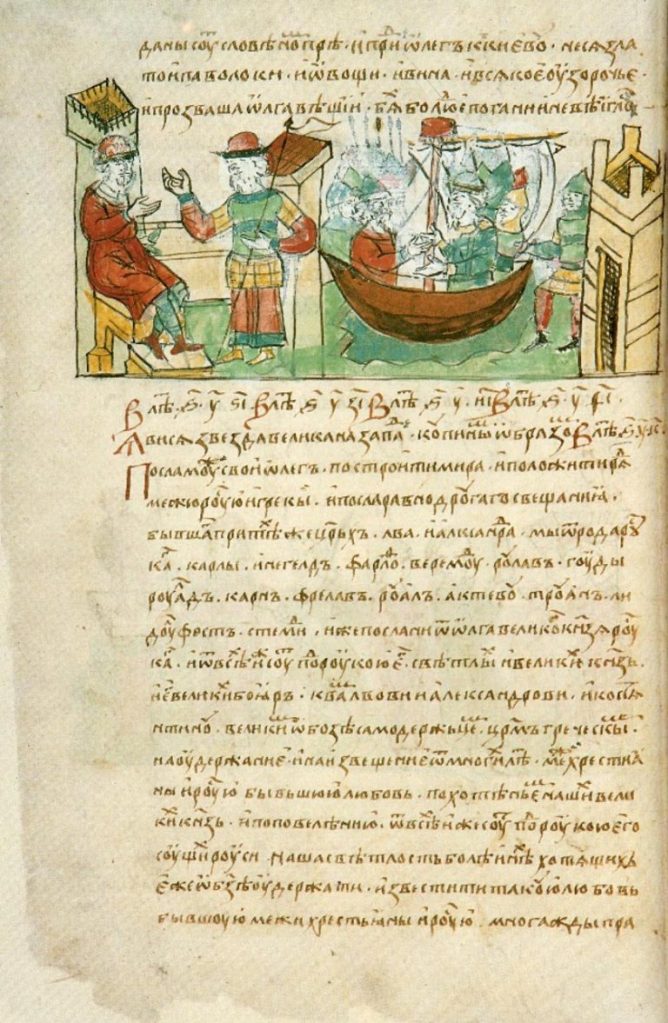 даны соу словѣнопрѣ · и приѡлегъ ккиево · неса зла
то ипаволоки · и ѡвощи · ивина · ивсякоеоузорочье ·
ипрозваша ѡлга вѣщіи · бяболюѐ погани иневѣигло
В лѣ · ҂ѕ · у · ѕі В лѣ ҂ѕ у зі В лѣ ҂ѕ · у · иі В лѣ · ҂ѕ · у · ѳі ·
Ависязвездавелика на запа · копиищ ѡбразо В лѣ ҂ѕ у к
Посламоужсвои ѡлегъ · построитимира · иположитиря
межюроусюигрекы · ипосларавнодроугагосвещания ·
бывшапритѣжецрьхъ · лва · иалксанра · мы ѿродару
ка · карлы · инегелдъ · фарло · веремоу · роулавъ · гоуды
роуалдъ · карнъ · фрелавъ · роуалъ · актево · троуанъ · ли
доу фостъ · стеми · ижепослани ѿ ѡлгавеликокнзя роу
ка · и ѿвсѣ иже соу пороукою ѐ · свѣтлы ивелики кнзь ·
иевеликибояръ · квалвови иалександрови · икостя
нтино · велики ѡбозѣ самодержьце · црмъ греческы ·
наоудержание · инаизвещение ѿ многи лѣ · меж хрестия
ны ироусю бывьшюю любовь · похотѣнье наши вели
ки кнзь · ипоповелѣнию · ѿвсѣ ижесоу пороукоюего
соущироуси · нашасвѣтлостьболѣинѣ хотящихъ
ежеѡбзѣоудержати · известититакоуюлюбовь
бывшоую межихрестьяны ироусю · многажды пра